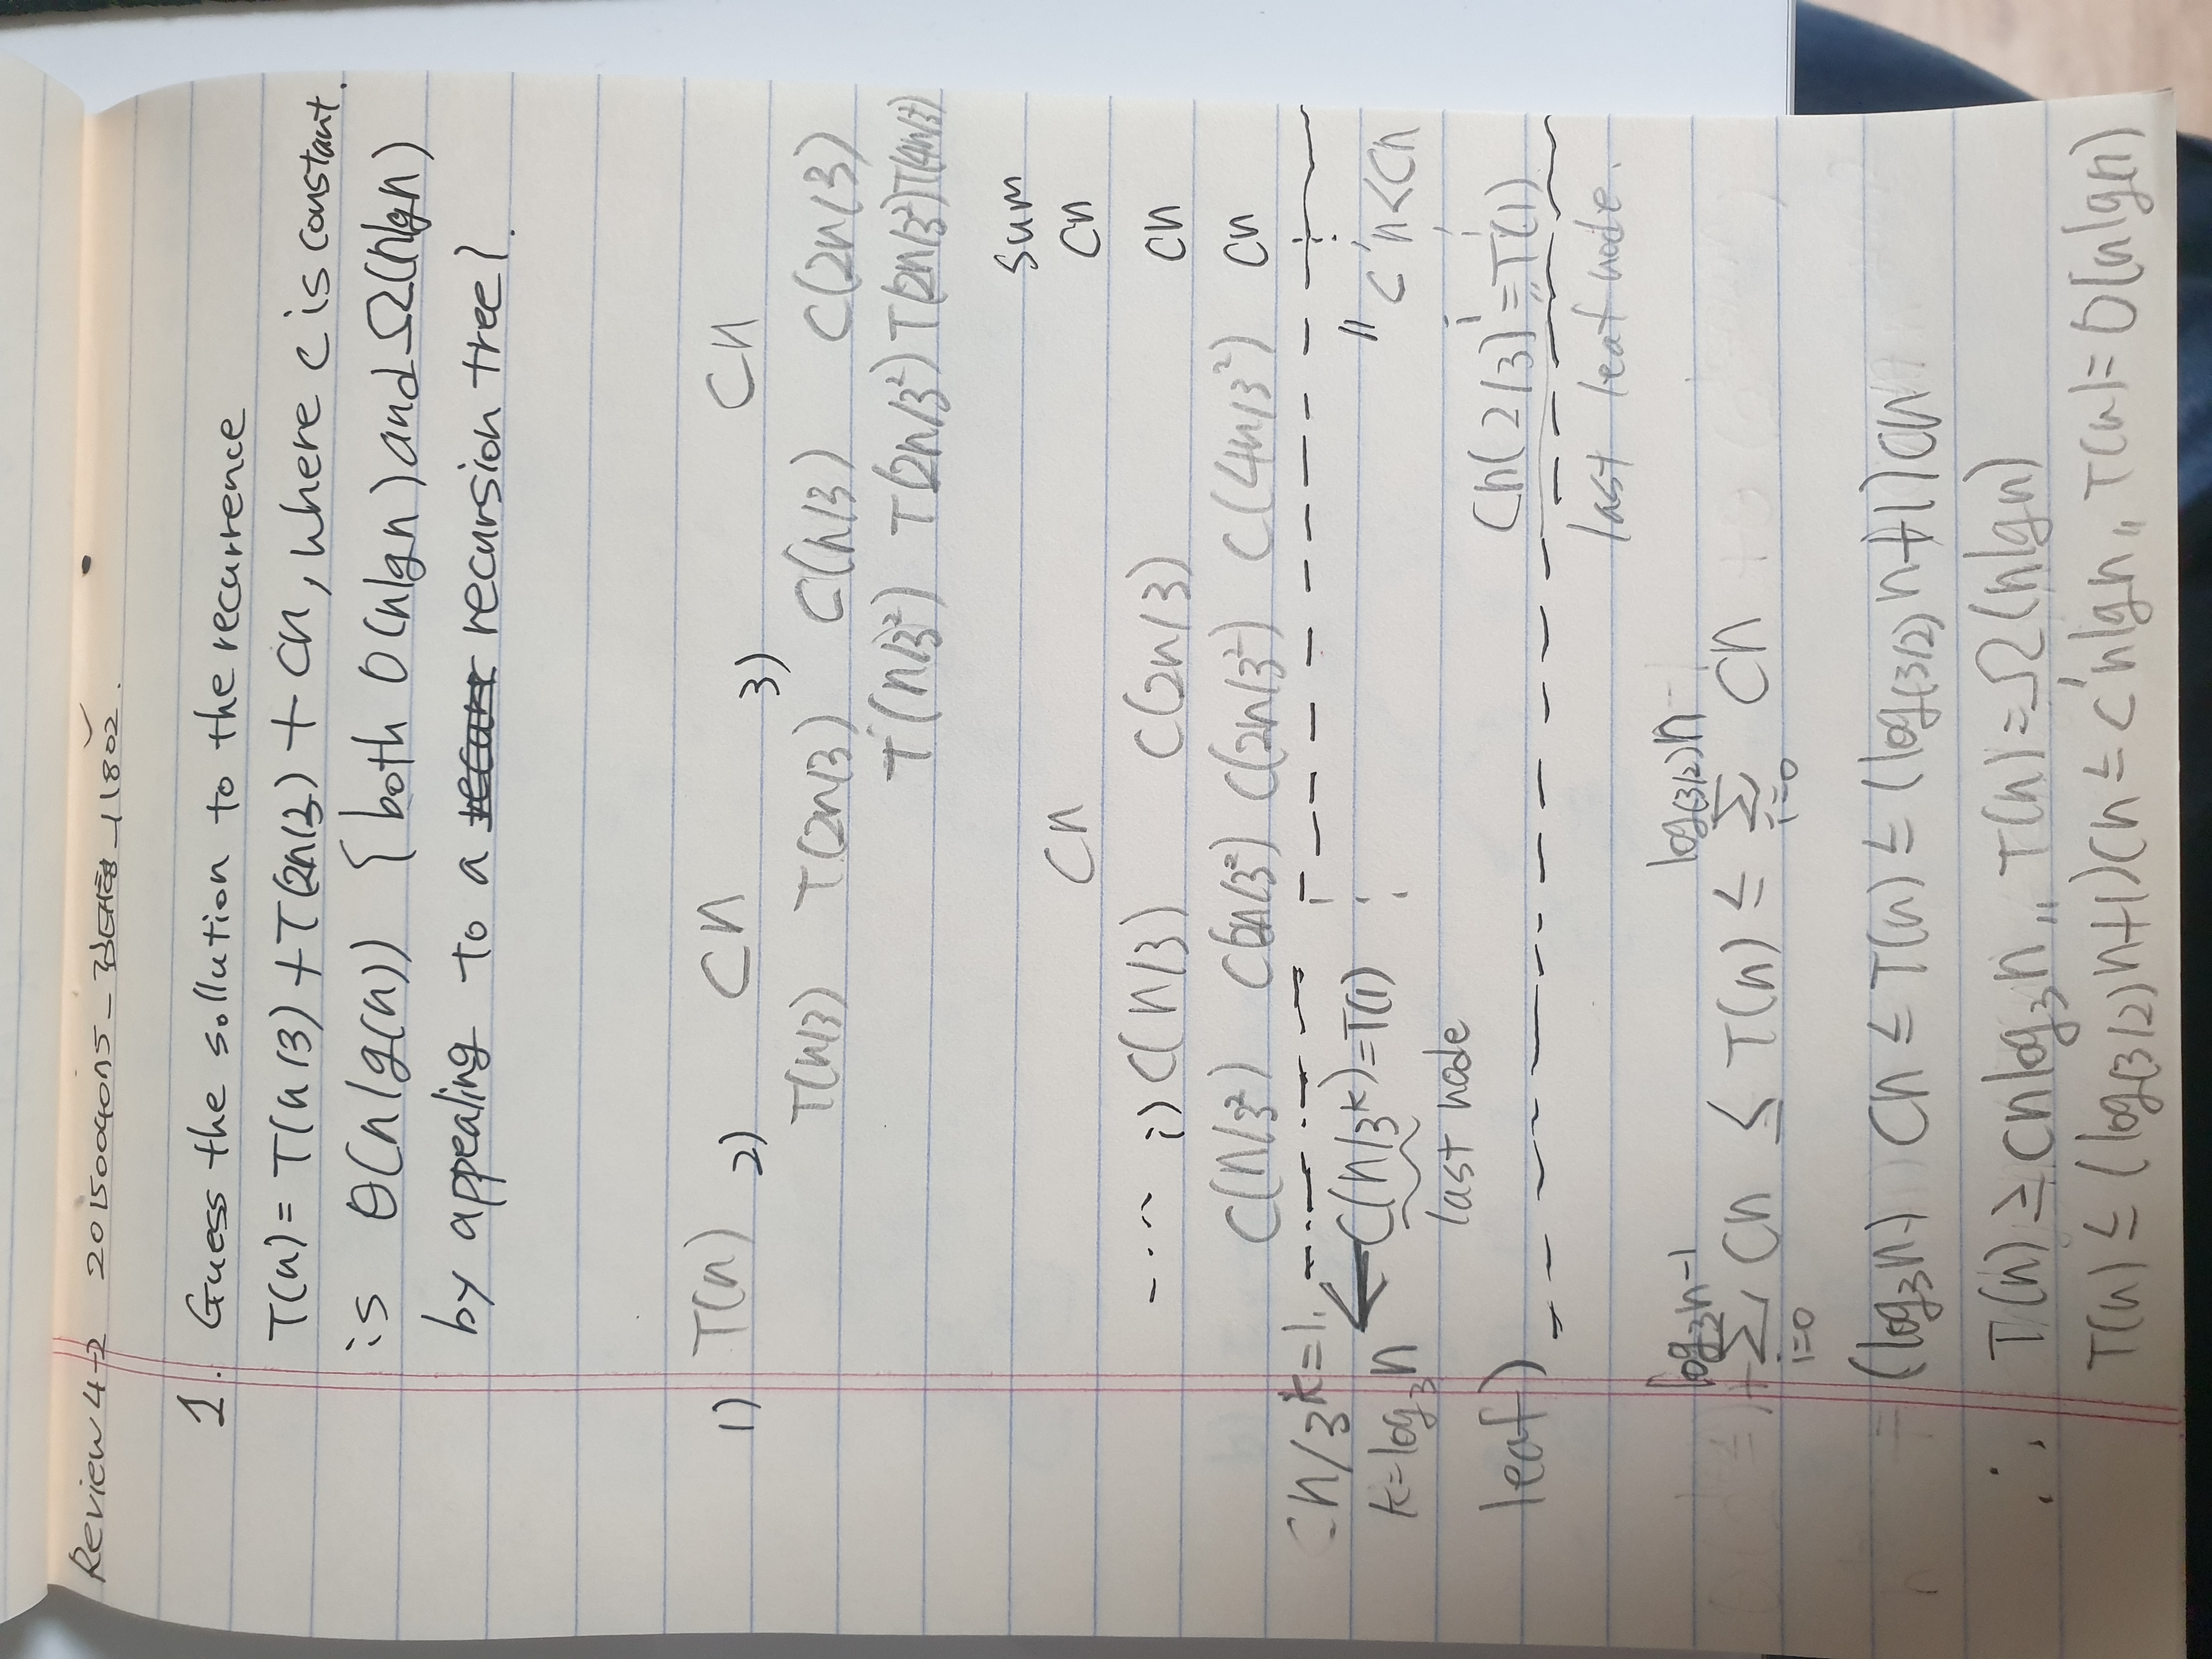 Review 4-2 201500400175_김대홍_11802.
1. Guess the sollution to the recurrence
T(n) = T(n/3) + T(2n/3) + Cn, where c is constant.
is Θ(nlg(n)) { both O(nlgn) and Ω(nlgn)
by appealing to a recursion tree}.
1) T(n) 2) Cn 3) Cn
T(n/3) T(2n/3) C(n/3) C(2n/3)
T(n/3²) T(2n/3²) T(2n/3²) T(4n/3²)
sum
Cn Cn
---- i) C(n/3) C(2n/3) Cn
C(n/3²) C(2n/3²) C(2n/3²) C(4n/3²) Cn
Cn/3^k=1.
← C(n/3^k)=T(1) " C'n<Cn
k=log₃n
last node
leaf) Cn(2/3)^i = T(1)
last leaf node.
log₃n-1 log(3/2)n
Σ Cn ≤ T(n) ≤ Σ Cn
i=0 i=0
(log₃n) Cn ≤ T(n) ≤ (log(3/2)n+1)Cn
∴ T(n) ≥ Cnlog₃n,, T(n)=Ω(nlgn)
T(n) ≤ (log(3/2)n+1)Cn ≤ C'nlgn,, T(n)=O(nlgn)